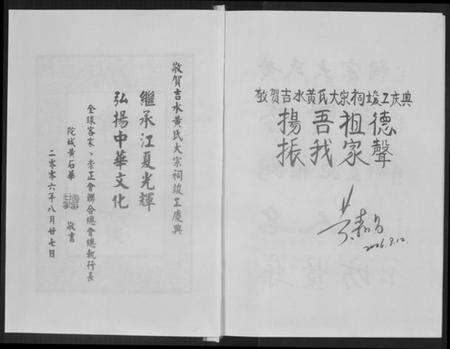 敬賀吉水黃氏大宗祠竣工慶典
揚吾祖德
振我家聲
2006.9.12
敬賀吉水黃氏大宗祠竣工慶典
繼承江夏光輝
弘揚中華文化
全球客家、崇正會聯合總會總執行長
黃石華 敬書
二零零六年八月廿七日